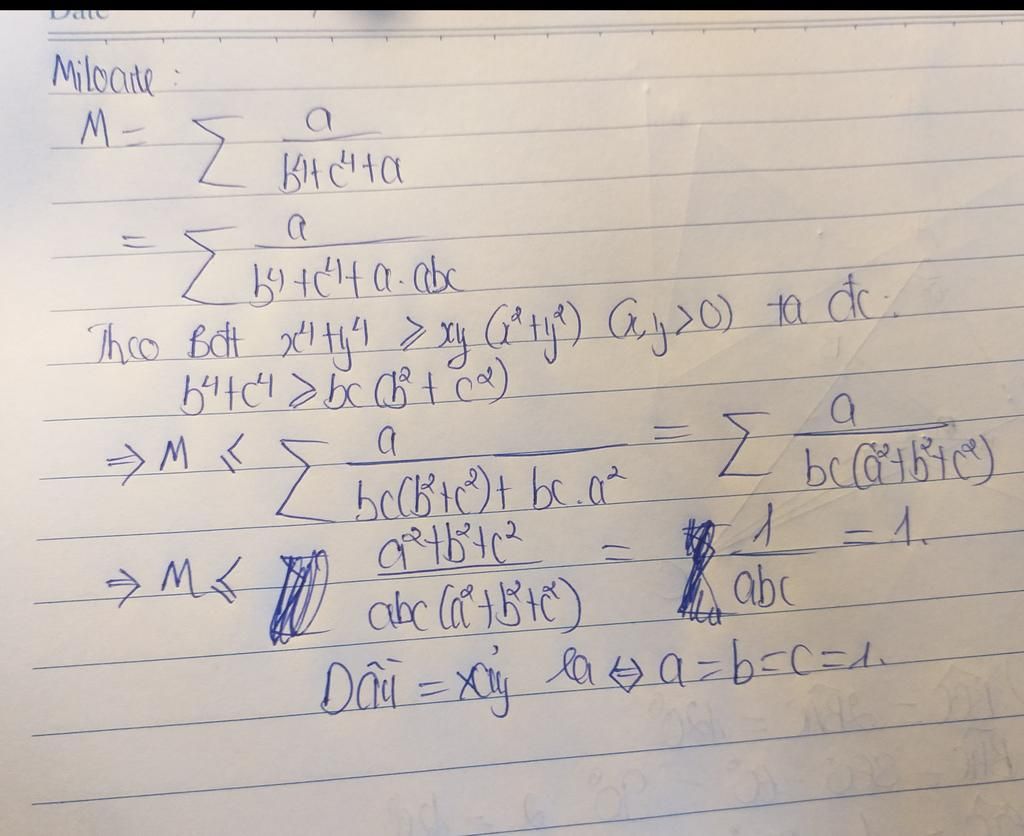 Date
Miloarte :
M = ∑ a/(b⁴+c⁴+a)
= ∑ a/(b⁴+c⁴+a.abc)
Theo Bđt x⁴+y⁴ ⩾ xy (x²+y²) (x,y>0) ta đc:
b⁴+c⁴ ⩾ bc (b²+c²)
⇒ M ⩽ ∑ a/(bc(b²+c²)+bc.a²) = ∑ a/(bc(a²+b²+c²))
⇒ M ⩽ (a²+b²+c²)/(abc(a²+b²+c²)) = 1/abc = 1.
Dấu = xảy ra ⇔ a=b=c=1.